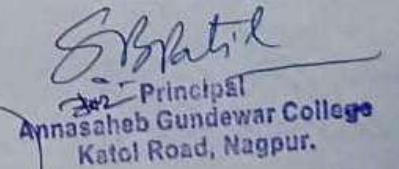 SBPatil
for Principal
Annasaheb Gundewar College
Katol Road, Nagpur.